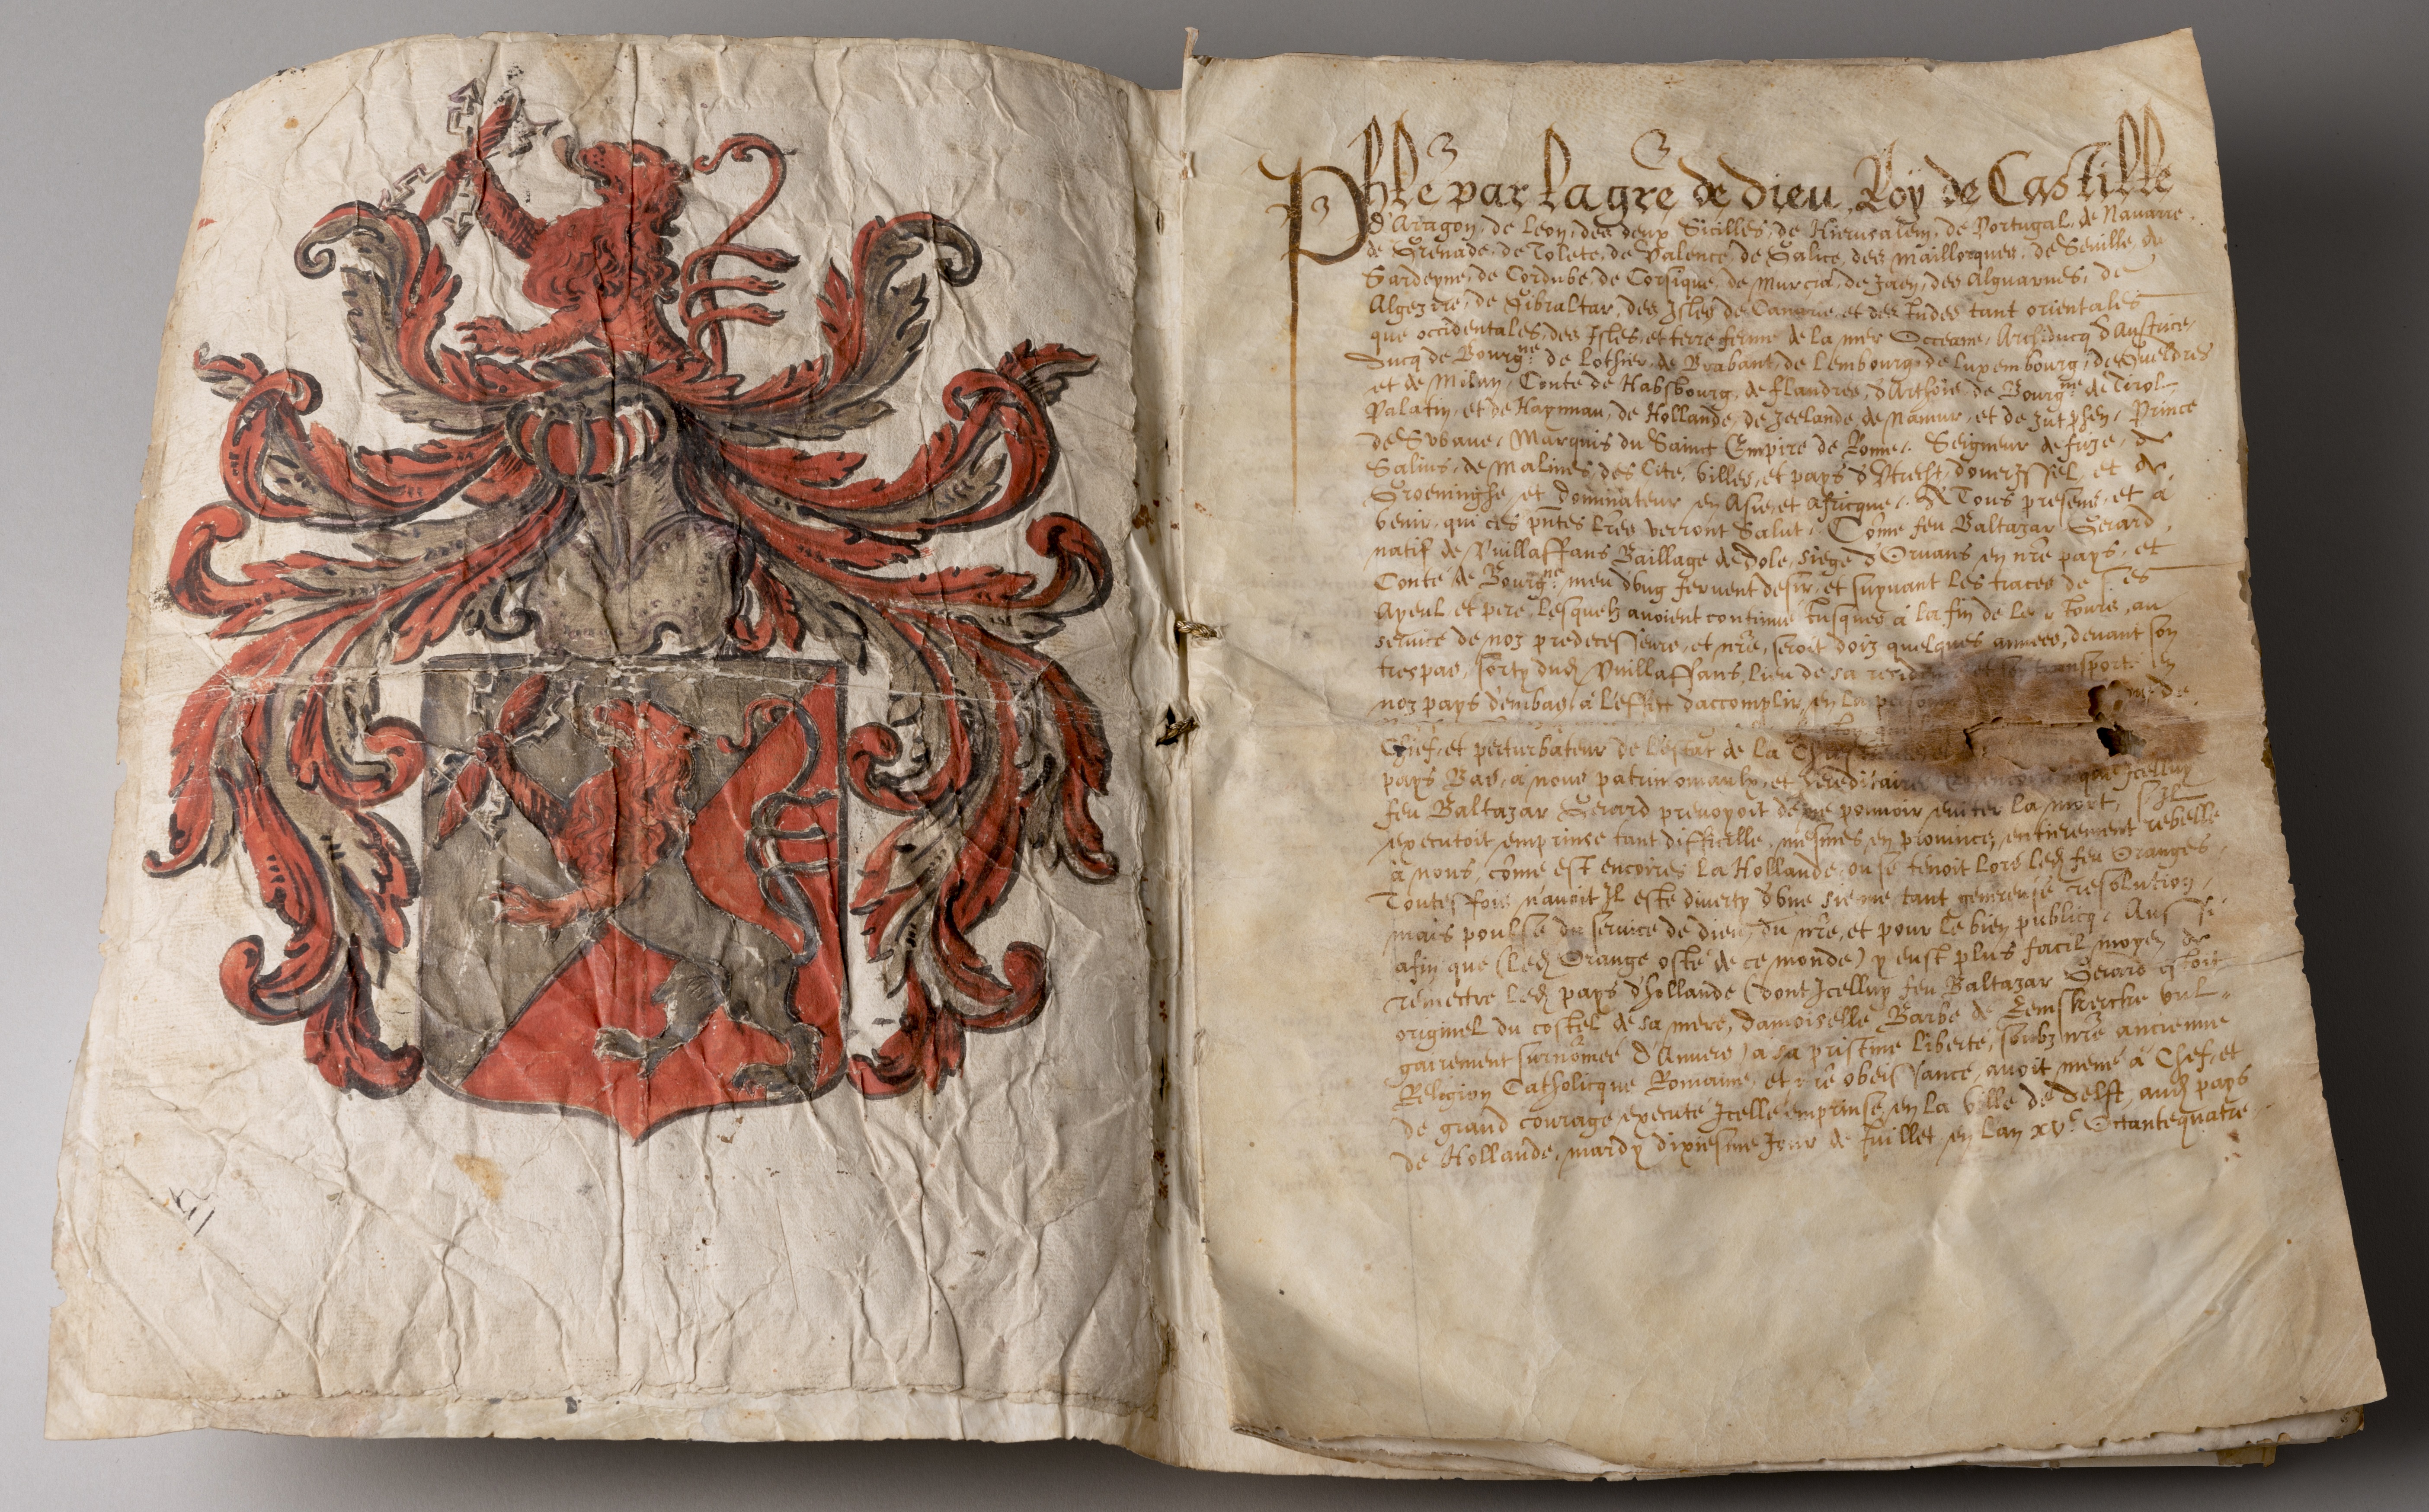 Phle par la gre de dieu, Roy de Castille
d'Arragon, de Leon, des deux Sicilles, de Hierusalem, de Portugal, de Navarre
de Grenade, de Tolete, de Valence, de Galice, des Maillorques, de Seville, de
Sardeyne, de Cordube, de Corsique, de Murcia, de Jaen, des Alguarves, de
Algezire, de Gibraltar, des Isles de Canarie, et des Indes tant orientales
que occidentales, des Isles et terre ferme de la mer Occeane, Archiducq d'Austrice,
ducq de Bourgne de Lothier, de Brabant, de Lembourg, de Luxembourg, de Gueldres
et de Milan, Conte de Habsbourg, de flandres, d'Arthois, de Bourgne de Tirol
Palatin, et de Haynnau, de Hollande, de Zeelande, de Namur, et de Zutphen, Prince
de Svbave, Marquis du Sainct Empire de Rome, Seigneur de frize, de
Salins, de Malines, des Cité, villes, et pays d'Utrecht, d'overyssel, et de
Groeninghe, et dominateur en Asie, et Africque, A Tous presens, et à
venir, qui ces pntes lres verront Salut, Come feu Baltazar Gerard,
natif de Vuillaffans Baillage de dole, siege d'Ornans en nre pays, et
Conté de Bourgne, meu d'ung fervent desir, et suyvant les traces de ses
ayeul et pere, lesquelz avoient continué Jusques à la fin de leur Jours, au
service de noz predecesseurs, et nre, seroit doiz quelques années, devant son
trespas, sorty dudt Vuillaffans, lieu de sa residence et soy transporté en
noz pays d'embas, à l'effect d'accomplir en la personne
Chief, et perturbateur de l'estat de la
pays Bas, à nous patrimoniaulx, et hereditaires que Icelluy
feu Baltazar Gerard prevoyoit de ne pouvoir eviter la mort, s'il
executoit emprinse tant difficille, mesmes en province, entierement rebelle
à nous, come est encoires la Hollande, ou se tenoit lors ledt feu Oranges,
Toutesfois n'avoit Il esté diverty d'une sienne tant genereuse resolution,
mais poulsé du service de dieu, du nre, et pour le bien publicq, Aussi
afin que (ledt Orange osté de ce monde) y eust plus facil moyen de
remectre ledt pays d'hollande (dont Icelluy feu Baltazar Gerard estoit
originel du costel de sa mere, damoiselle Barbe de Eemskercke vul-
gairement surnomée d'Anvers) à sa pristine liberté, soubz nre ancienne
Religion Catholicque Romaine, et nre obeissance, avoit mené à Chef, et
de grand courage executé Icelle emprinse, en la ville de delft, audt pays
de Hollande, mardy dixiesme Jour de Juillet, en l'an xvc. Octantequatre